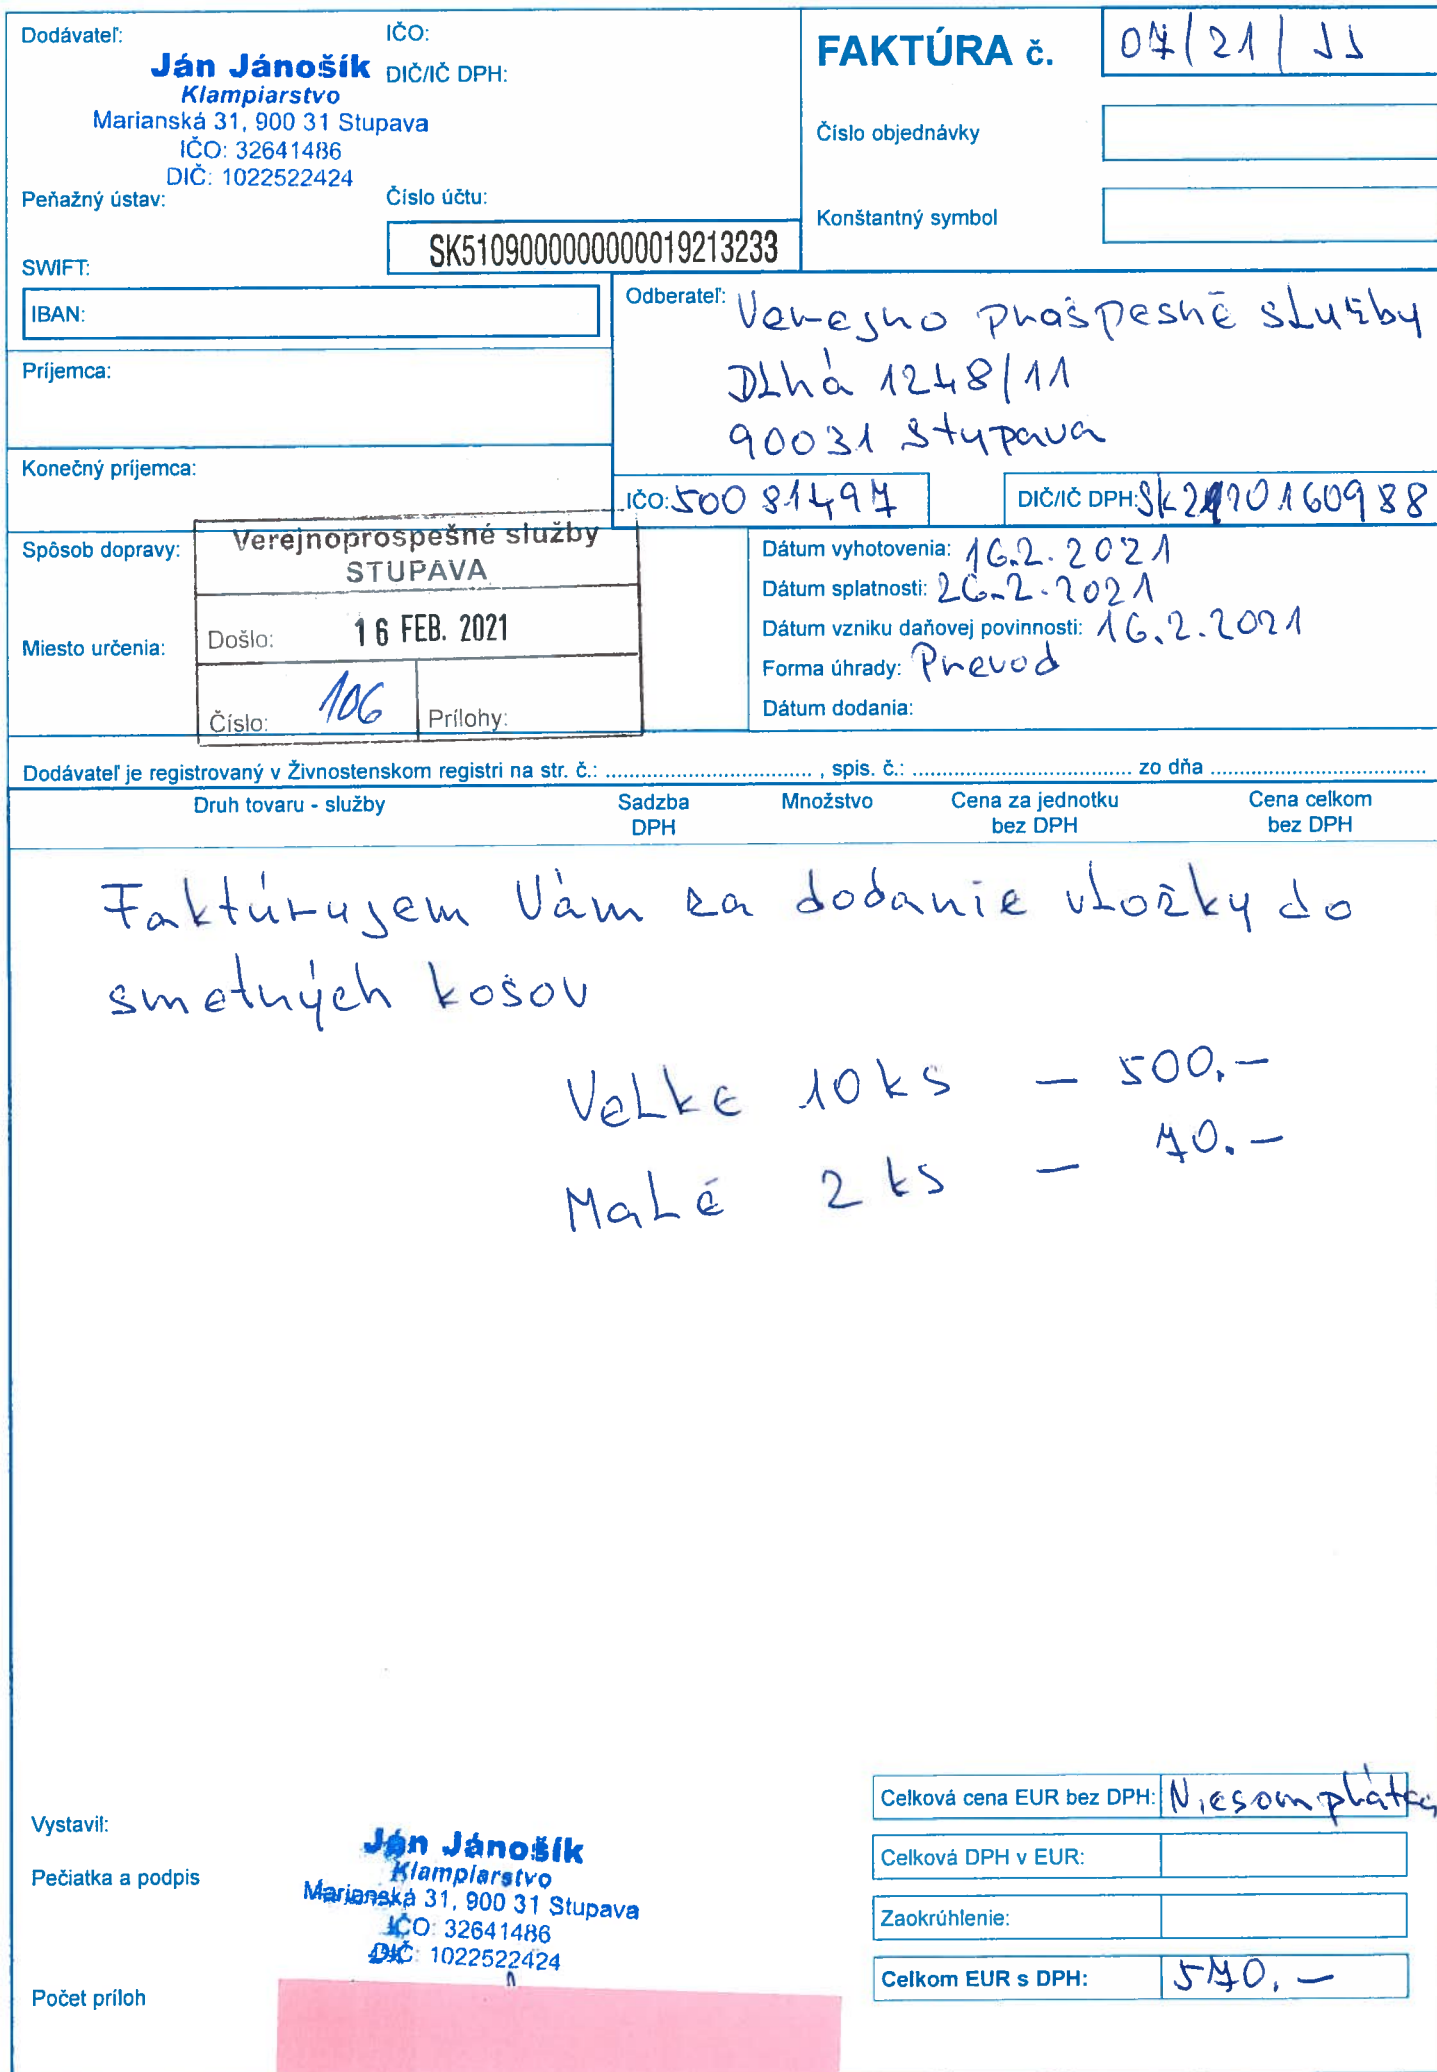 Dodávateľ:
IČO:
Ján Jánošík
DIČ/IČ DPH:
Klampiarstvo
Marianská 31, 900 31 Stupava
IČO: 32641486
DIČ: 1022522424
Peňažný ústav:
Číslo účtu:
SK5109000000000019213233
SWIFT:
IBAN:
FAKTÚRA č.
07/21/JJ
Číslo objednávky
Konštantný symbol
Príjemca:
Konečný príjemca:
Odberateľ: Verejno prašpesné služby
Dlhá 1248/11
90031 Stupava
IČO: 50081497
DIČ/IČ DPH:
Spôsob dopravy:
Miesto určenia:
Verejnoprospešné služby
STUPAVA
Došlo: 16 FEB. 2021
Číslo: 106
Prílohy:
Dátum vyhotovenia: 16.2.2021
Dátum splatnosti: 26.2.2021
Dátum vzniku daňovej povinnosti: 16.2.2021
Forma úhrady: Prevod
Dátum dodania:
Dodávateľ je registrovaný v Živnostenskom registri na str. č.: .................................... , spis. č.: .................................... zo dňa ....................................
Druh tovaru - služby
Sadzba DPH
Množstvo
Cena za jednotku bez DPH
Cena celkom bez DPH
Faktúrujem Vám za dodanie vložky do
smetných košov
Velke 10 ks — 500.—
Malé 2 ks — 70.—
Vystavil:
Pečiatka a podpis
Ján Jánošík
Klampiarstvo
Marianská 31, 900 31 Stupava
IČO: 32641486
DIČ: 1022522424
Počet príloh
Celková cena EUR bez DPH: Niesom plátca
Celková DPH v EUR:
Zaokrúhlenie:
Celkom EUR s DPH: 570.—